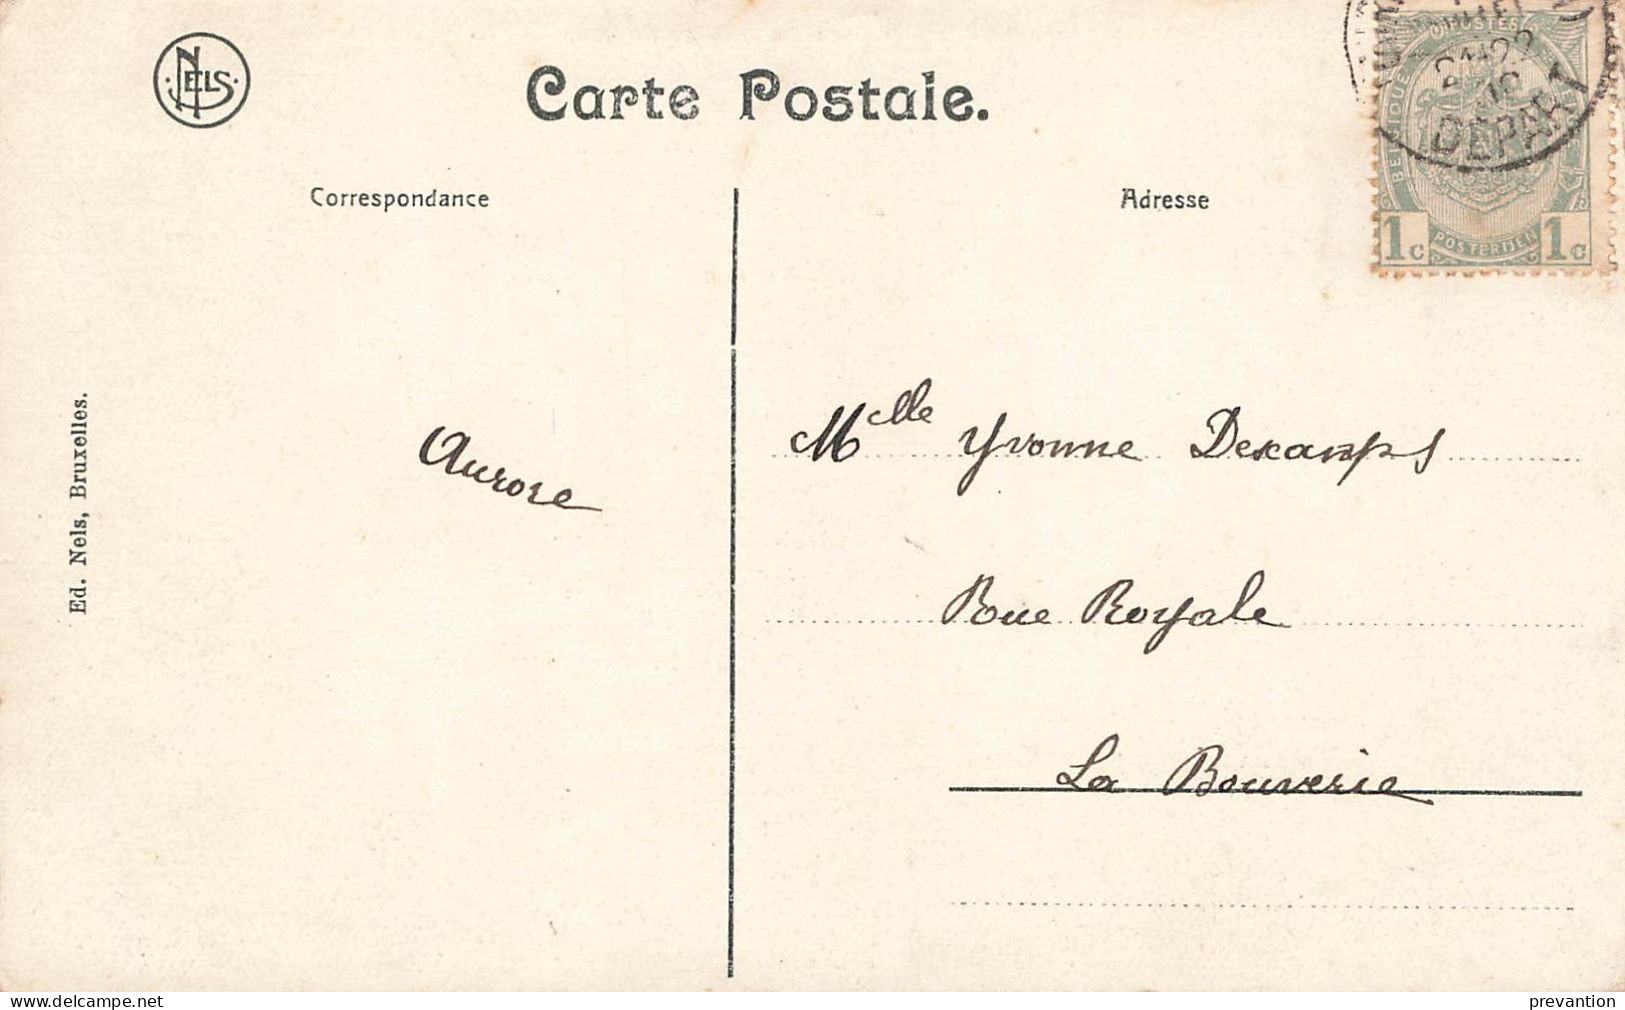 NELS
Carte Postale.
Correspondance
Adresse
POSTES
BELGIQUE
DEPART
1c POSTERIJEN 1c
Ed. Nels, Bruxelles.
Aurore
Mlle Yvonne Descamps
Rue Royale
La Bouverie
delcampe.net
prevantion